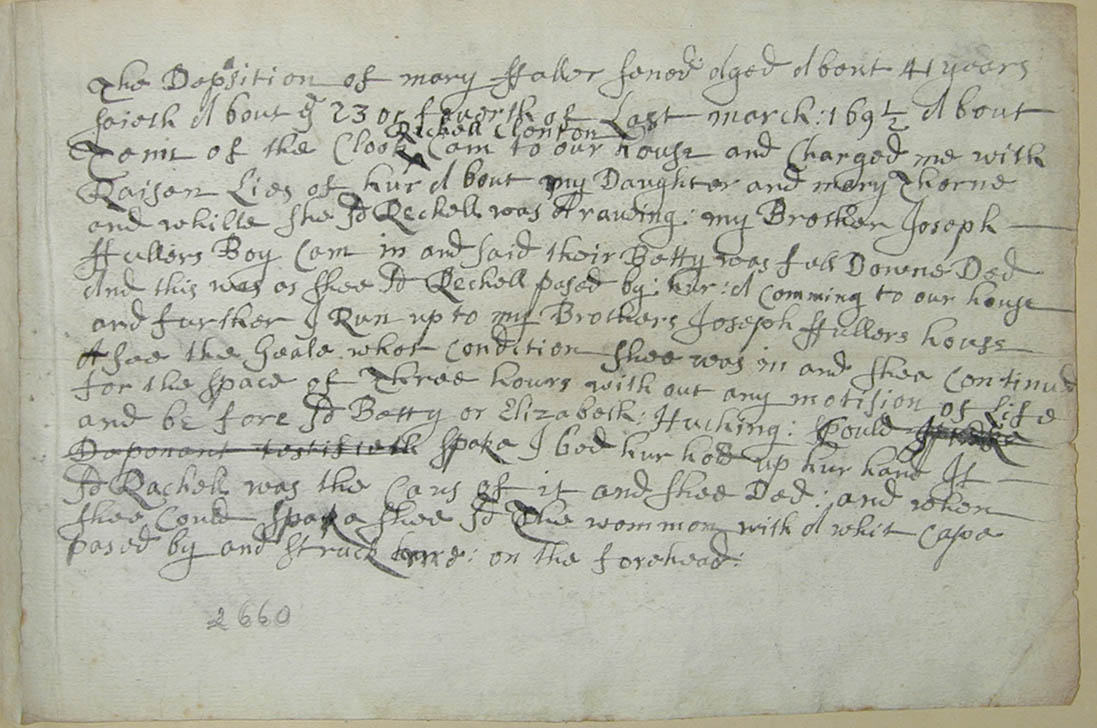 The Deposition of mary ffuller senor aged about 41 years
saieth about ye 23 or fouerth of Last march: 1691/2 about
Tenn of the Clock Rechell Clenton Cam to our house and Charged me with
Raisen Lies of hur about my Daughter and mary Thorne
and whille she sd Rechell was A raveing: my Brother Joseph
ffullers Boy Cam in and said their Betty was fall Downe Ded
And this was as shee sd Rechell pased by: hur: a Comming to our house
and further I Run up to my Brothers Joseph ffullers house
to see the Geale whot Condition shee was in and shee Continued
for the space of Three hours with out any motision of Life
and be fore sd Betty or Elizabeth: Huching: Could
Daponant testifieth Spake I bed hur hold up hur hand If
sd Rachell was the Caus of it and shee Ded: and when
shee Could Spake shee sd The womman with a whit Cape
pased by and struck hure: on the forehead:
2660